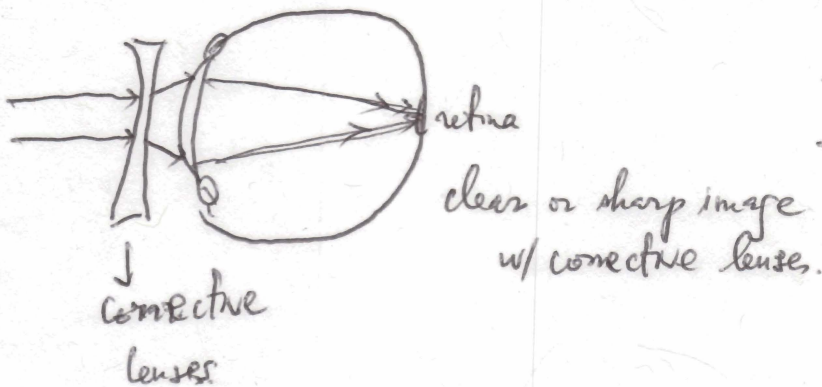 retina
clear or sharp image
w/ corrective lenses.
corrective
lenses